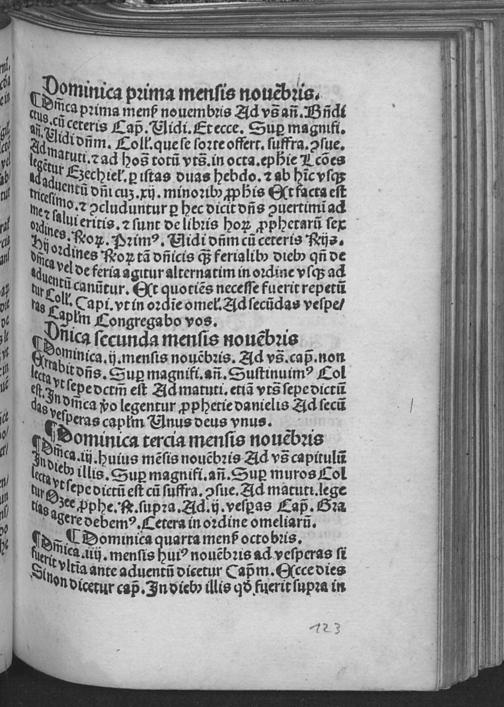 Dominica prima mensis nouẽbris.
¶ Dm̃ca prima menẜ nouembris Ad vs̃ añ. Bñdi
ctus. cũ ceteris Cap̃. Vidi. Et ecce. Sup̱ magnifi.
añ. Vidi dñm. Coll̕. que se sorte offert. suffra. ꝯsue.
Ad matuti. ⁊ ad hoñ totũ vts̃. in octa. ep̃hie Lc̃oes
legẽtur Ezechiel̕. ꝑ istas duas hebdo. ⁊ ab hĩc vsqꝫ
ad aduentũ dñi cuꝫ .xij. minoribꝰ ꝓphis Et facta est
tricesimo. ⁊ ꝯcluduntur ꝑ hec dicit dñs ꝯuertimĩ ad
me ⁊ salui eritis. ⁊ sunt de libris hoꝝ ꝓphetarũ sex
ordines. Roꝝ. Primꝰ. Vidi dñm cũ ceteris R̃ijs.
Hij ordines Roꝝ tã dñicis qꝫ̃ ferialibꝰ diebꝰ qñ de
dm̃ca vel de feria agitur alternatim in ordine vsqꝫ ad
aduentũ canũtur. Et quotiẽs necesse fuerit repetũ
tur Coll̕. Capi. vt in ordĩe omel̕. Ad secũdas vespe/
ras Caplm̃ Congregabo vos.
Dñica secunda mensis nouẽbris
¶ Dominica .ij. mensis nouẽbris. Ad vs̃. cap̃. non
Errabit dñs. Sup̱ magnifi. añ. Sustinuimꝰ Col
lecta vt sepe dctm̃ est Ad matuti. etiã vts̃ sepe dictũ
est. In dm̃ca ṽo legentur ꝓphetie danielis Ad secũ
das vesperas caplm̃ Unus deus vnus.
¶ Dominica tercia mensis nouẽbris
¶ Dm̃ca .iij. huius mẽsis nouẽbris Ad vs̃ capitulũ
In diebꝰ illis. Sup̱ magnifi. añ. Sup̱ muros Col
lecta vt sepe dictũ est cũ suffra. ꝯsue. Ad matuti. lege
tur Ozee ꝓphe. ℟. supra. Ad .ij. vesp̱as Cap̃. Gra
tias agere debemꝰ. Cetera in ordine omeliarũ.
¶ Dominica quarta menẜ octobris.
¶ Dm̃ica .iiij. mensis huiꝰ nouẽbris ad vesperas si
fuerit vltĩa ante aduentũ dicetur Cap̃m. Ecce dies
Sinon dicetur cap̃. In diebꝰ illis qd̕ fuerit supra in
123